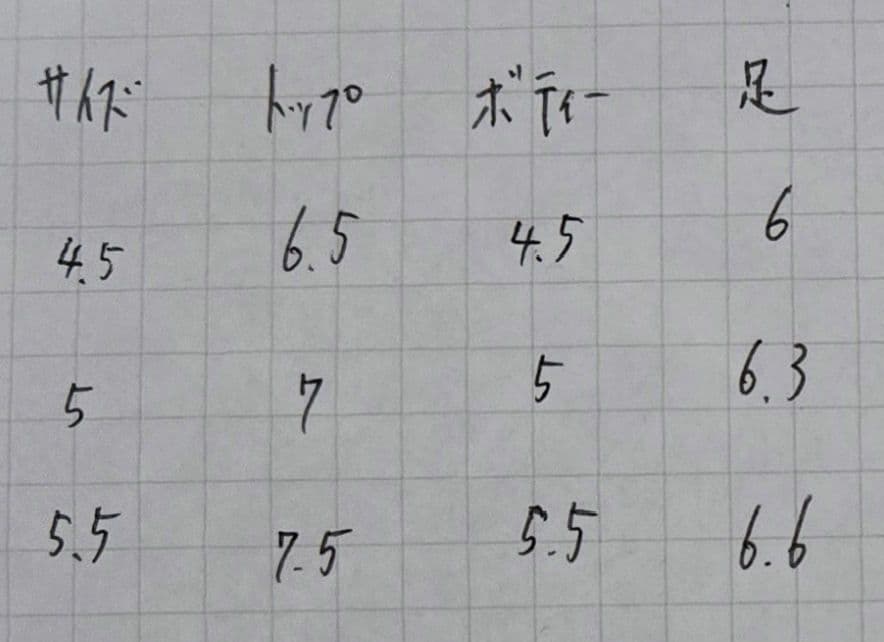 サイズ トップ ボディー 足
4.5 6.5 4.5 6
5 7 5 6.3
5.5 7.5 5.5 6.6